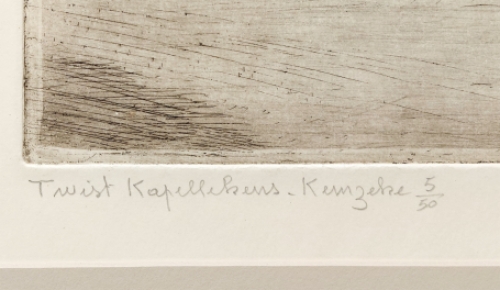 Twist Kapellekens - Kemzeke 5/50